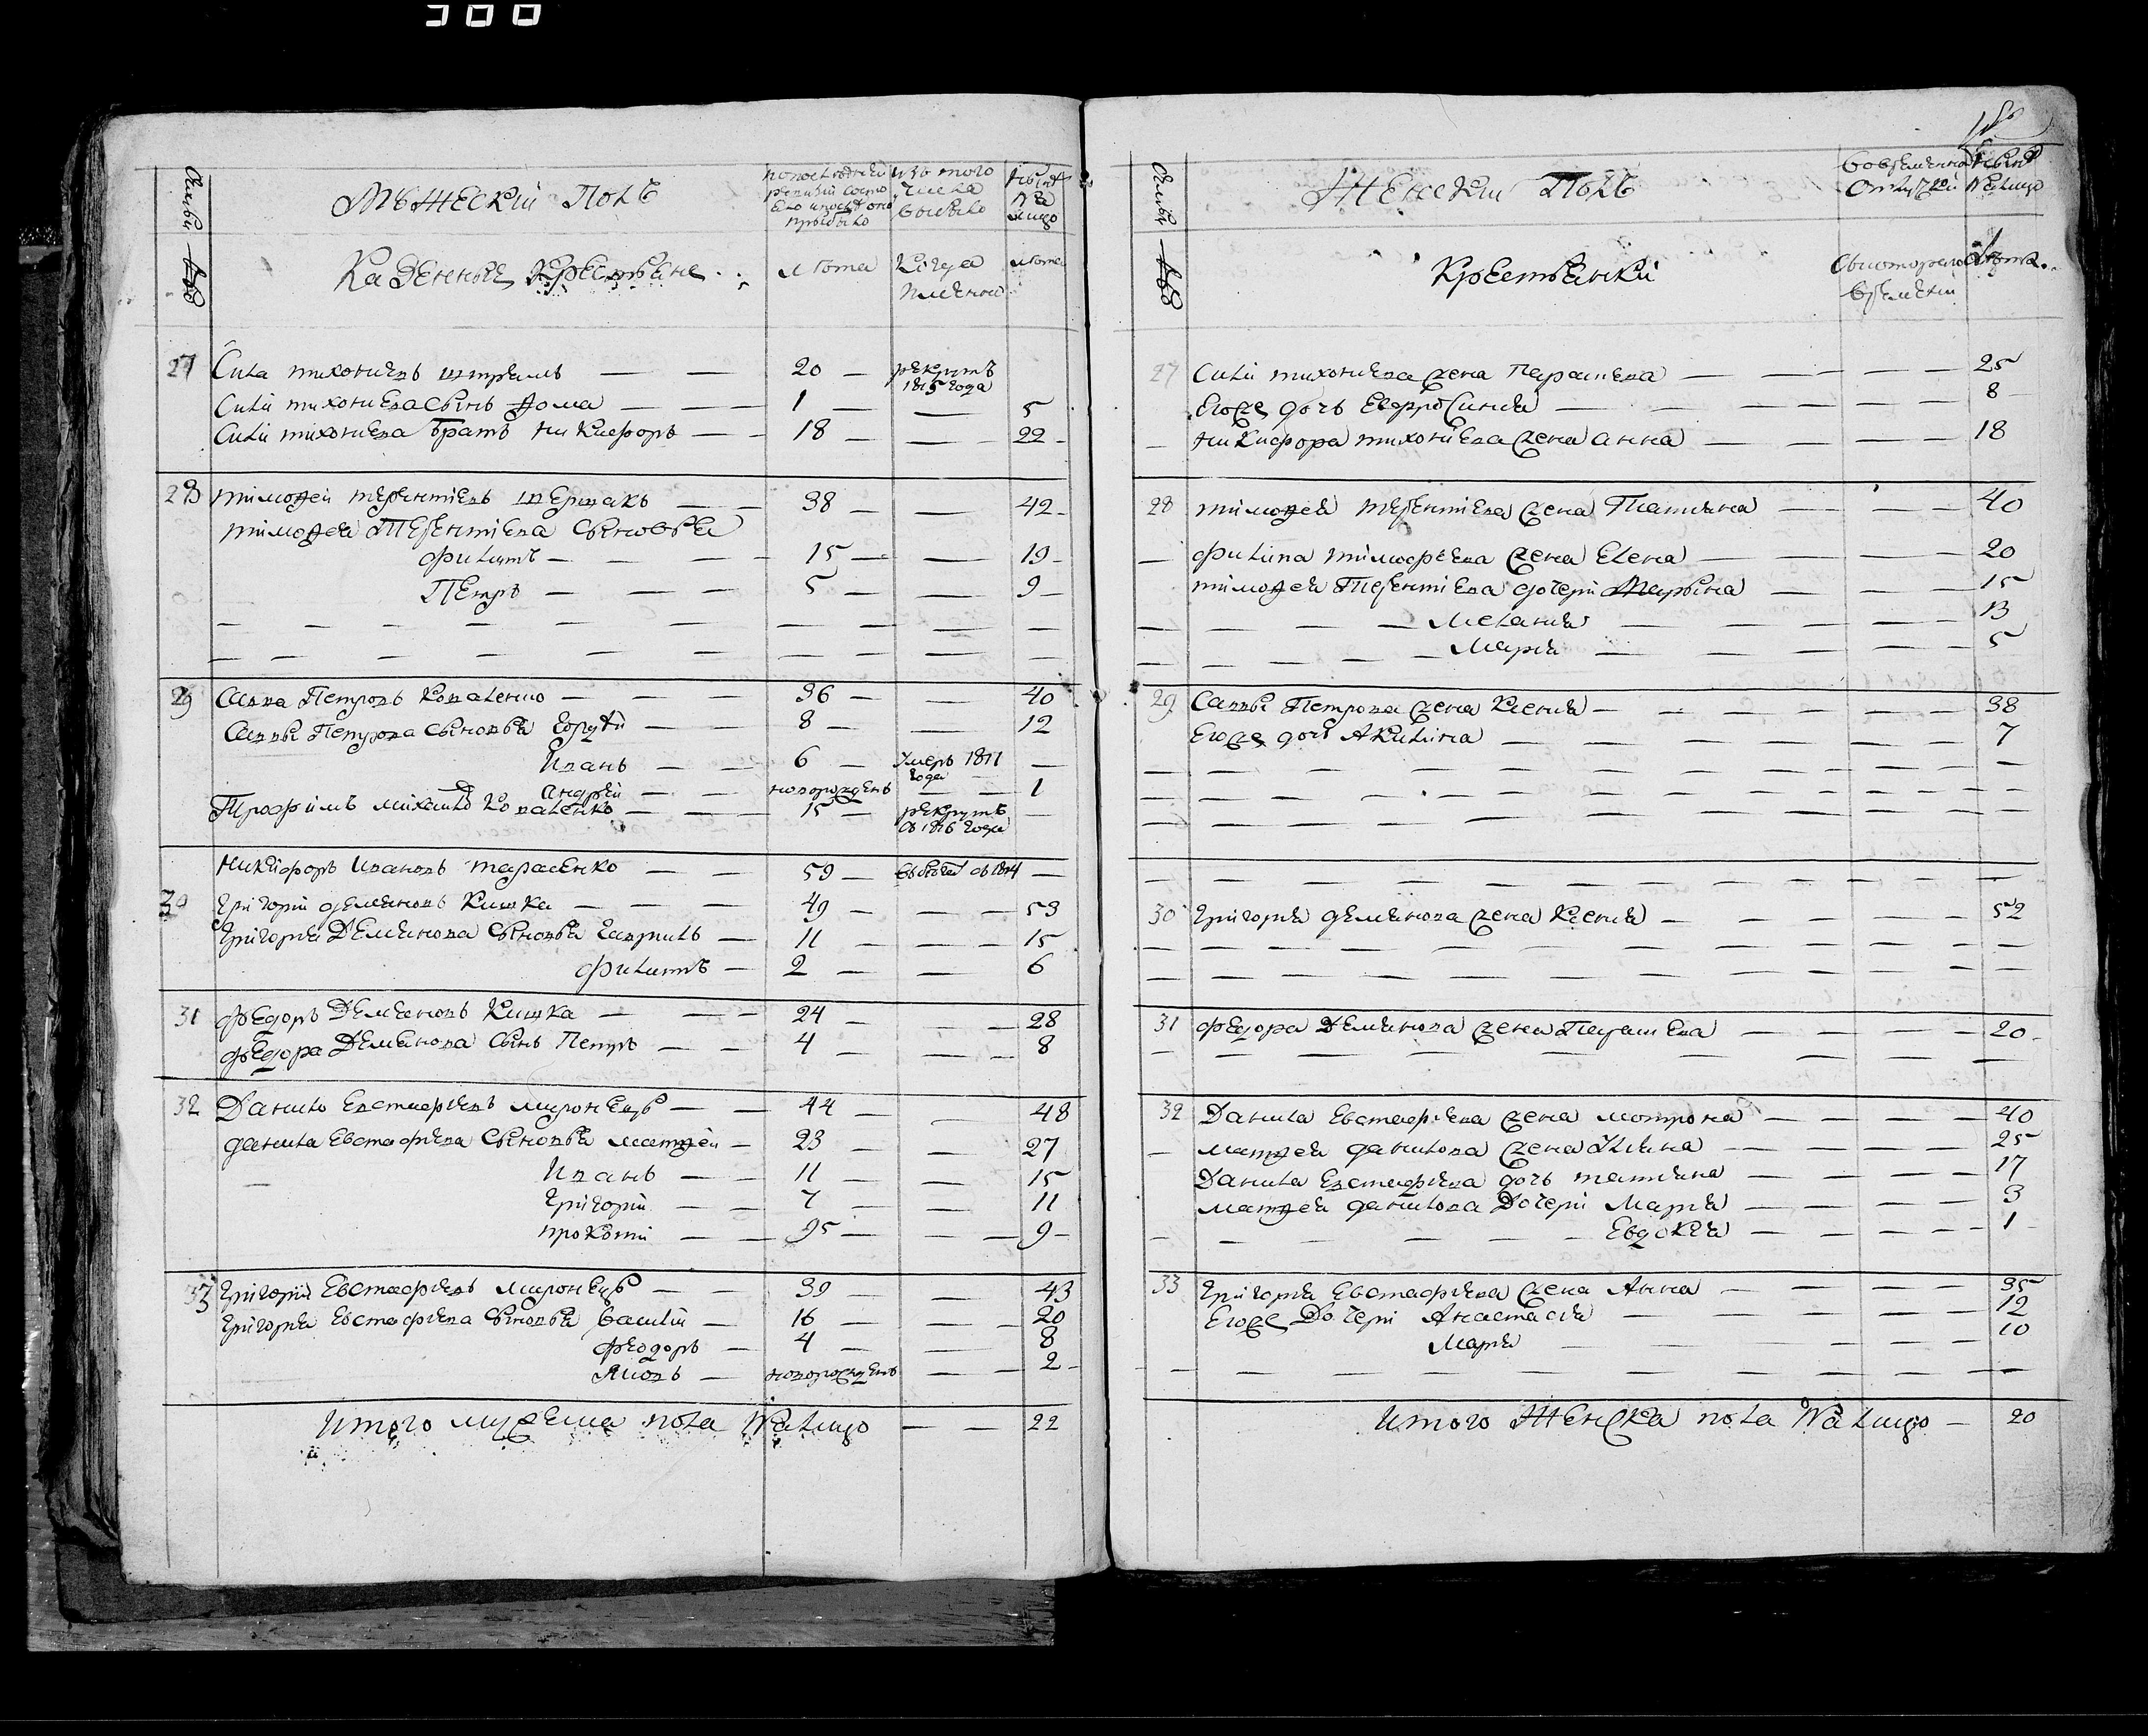 300
Мужеский Полъ
Казенные Крестьяне
Лета
Когда именно
Лета
27 Сила тихониевъ — 20 — рекрутъ 1815 года
Силы тихониева сынъ Фома — 1 — 5
Силы тихониева братъ никифоръ — 18 — 22
28 тимофей терентиевъ шермакъ — 38 — 42
тимофея Терентиева сыновья
филипъ — 15 — 19
Петръ — 5 — 9
29 Савва Петровъ Коваленко — 36 — 40
Саввы Петрова сыновья — 8 — 12
Иванъ — 6 — умеръ 1811 года
андрей — новорожденъ — 1
Трофимъ михайловъ Коваленко — 15 — рекрутъ въ 1816 года
Никифоръ Ивановъ тарасенко — 59
30 григорий демяновъ Кишка — 49 — 53
григория Демянова сыновья гаврилъ — 11 — 15
филипъ — 2 — 6
31 федоръ Демяновъ Кишка — 24 — 28
федора Демянова сынъ Петръ — 4 — 8
32 Данило Евстафиевъ миронецъ — 44 — 48
данила Евстафиева сыновья матфей — 23 — 27
Иванъ — 11 — 15
григорий — 7 — 11
прокопий — 5 — 9
33 григорий Евстафиевъ миронецъ — 39 — 43
григория Евстафиева сыновья василий — 16 — 20
феодоръ — 4 — 8
Яковъ — новорожденъ — 2
Итого мужеска пола На лицо — 22
Женский Полъ
Во временной отлучке
Ныне На лицо
Крестьянки
Съ которого времени
Лета
27 Силы тихониева жена Парашева — 25
Егоже дочь Евфросиния — 8
никифора тихониева жена анна — 18
28 тимофея терентиева жена Татияна — 40
филипа тимофеева жена Елена — 20
тимофея Терентиева дочери Марина — 15
Мелания — 13
Мария — 5
29 Саввы Петрова жена Ксения — 38
Егоже дочь Акилина — 7
30 григория демянова жена Ксения — 52
31 федора Демянова жена Парашева — 20
32 Данила Евстафиева жена мотрона — 40
матфея данилова жена Улияна — 25
Данила Евстафиева дочь татияна — 17
матфея данилова Дочери Мария — 3
Евдокия — 1
33 григория Евстафиева жена Анна — 35
Егоже Дочери Анастасия — 12
Мария — 10
Итого Женска пола На лицо — 20